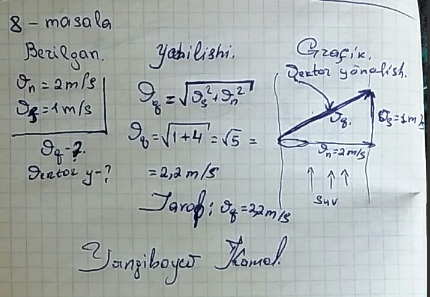 8 - masala
Berilgan.
ϑn = 2 m/s
ϑs = 1 m/s
ϑq - ?
Vektor y - ?
Yechilishi.
ϑq = √(ϑs² + ϑn²)
ϑq = √(1+4) = √5 =
= 2,2 m/s
Javob: ϑq = 2,2 m/s
Grafik.
Vektor yönalish.
ϑq.
ϑs = 1 m/s
ϑn = 2 m/s
suv
Kamol.